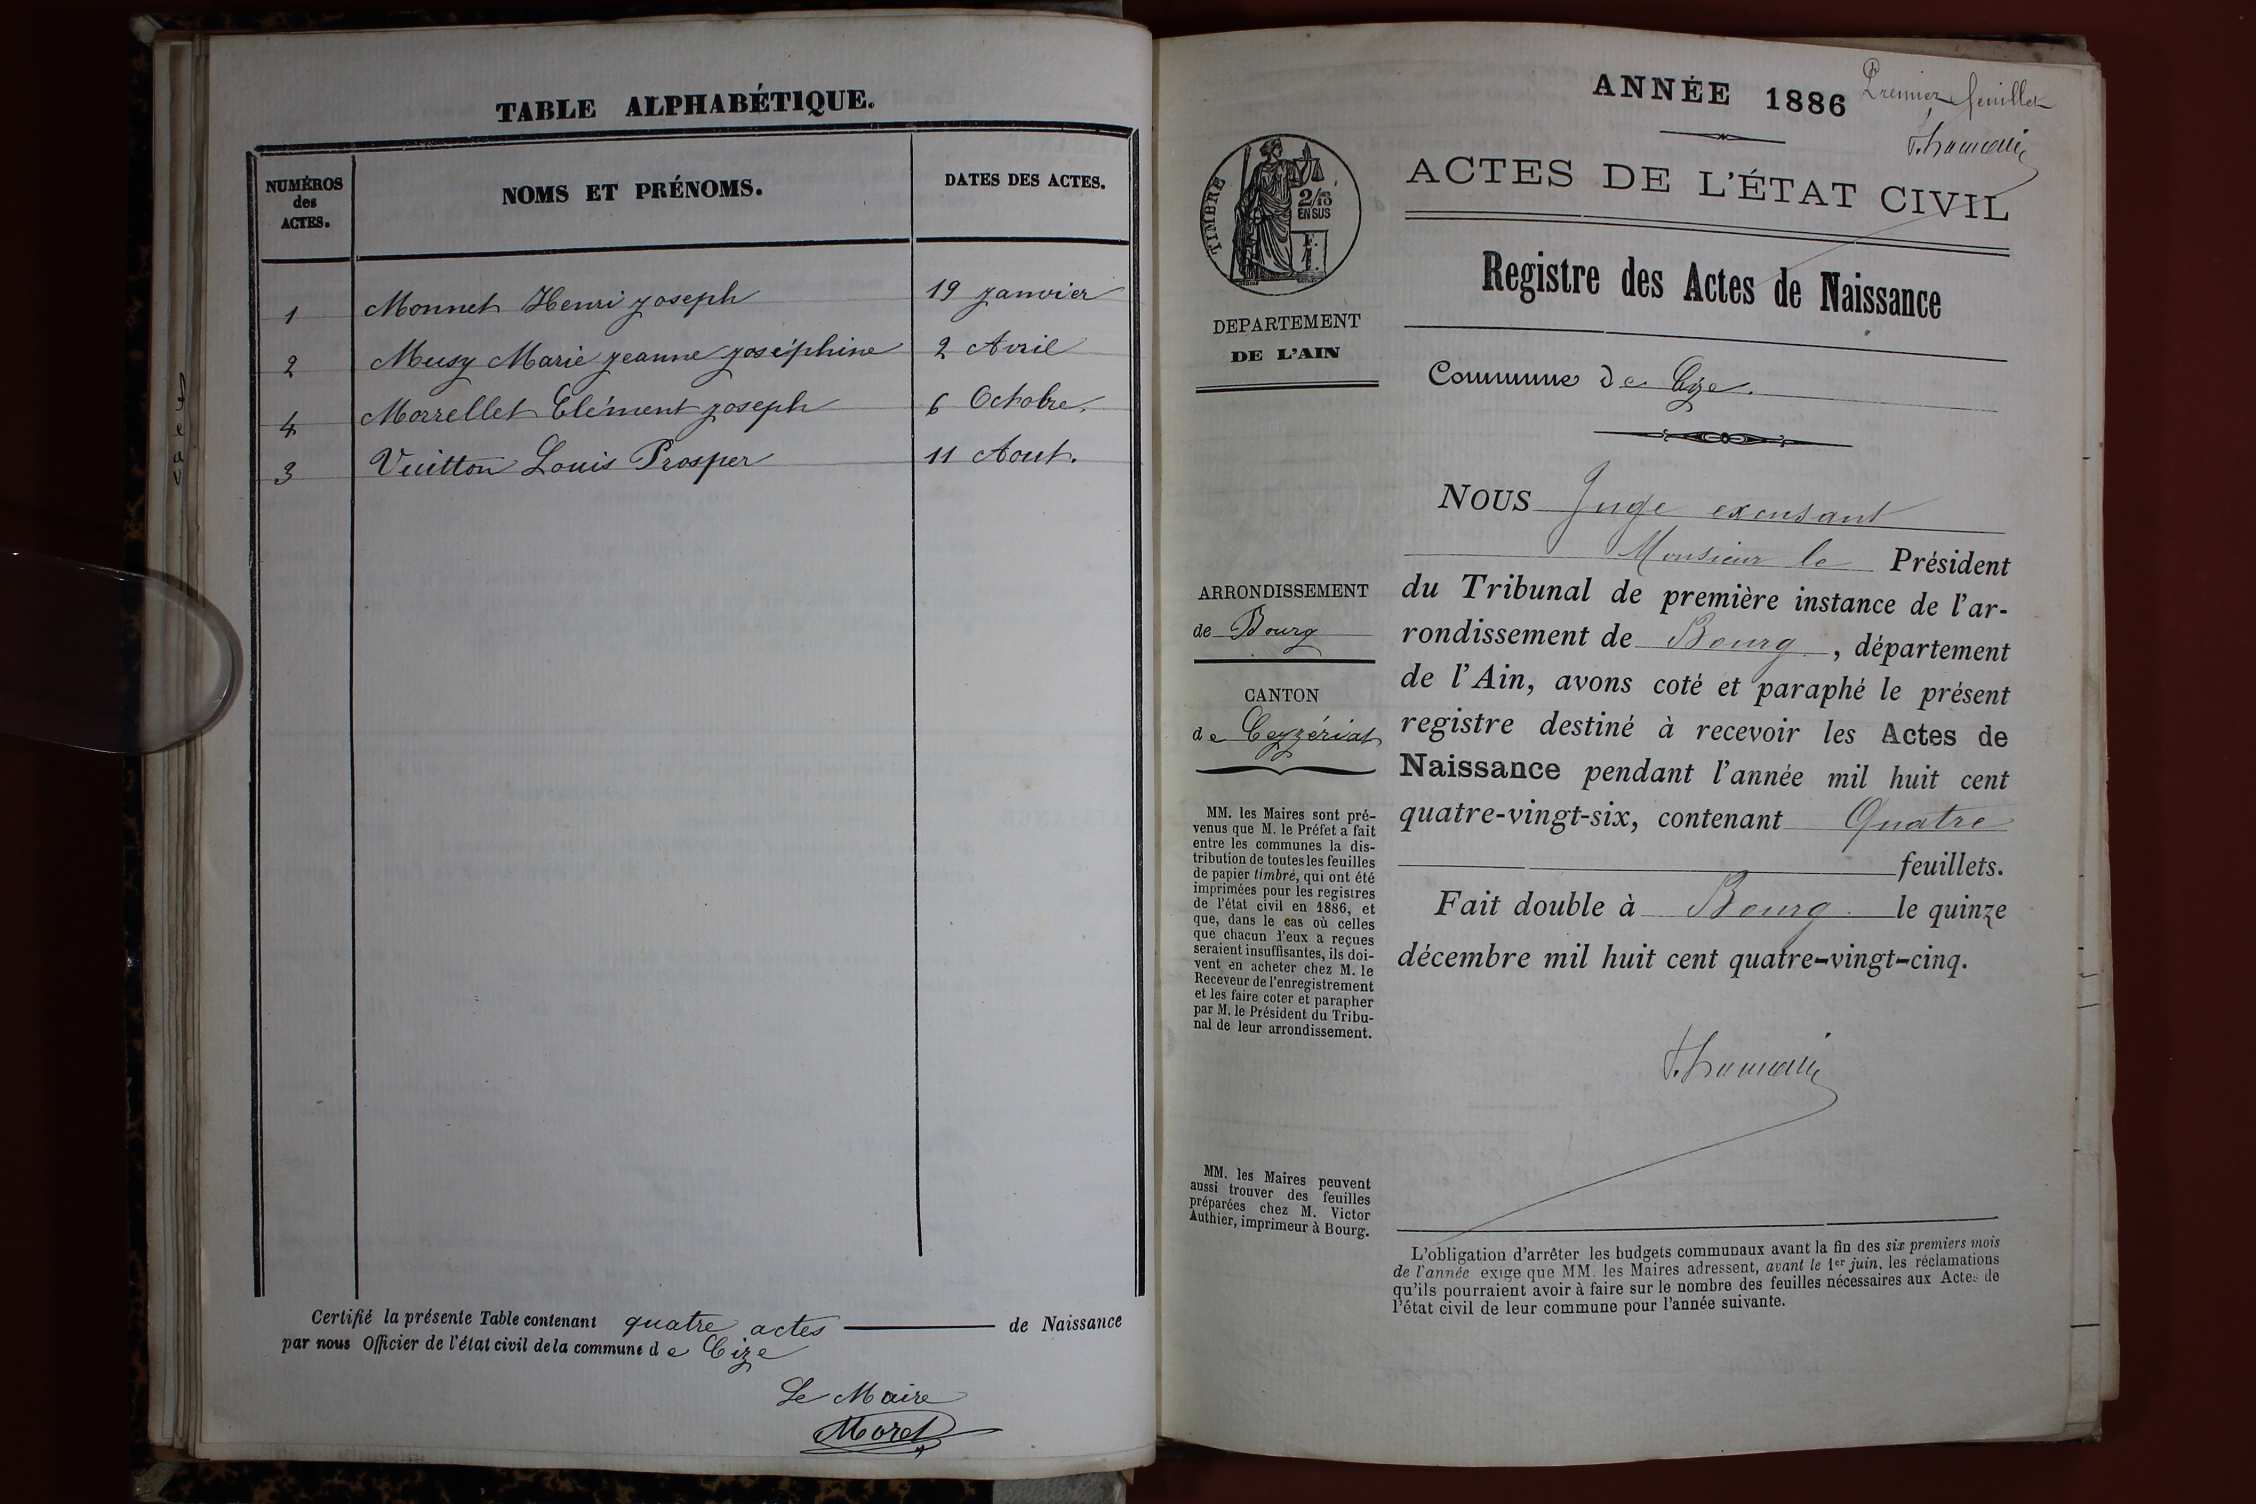 TABLE ALPHABÉTIQUE.
NUMÉROS
des
ACTES.
NOMS ET PRÉNOMS.
DATES DES ACTES.
1 Monnet Henri joseph 19 janvier
2 Musy Marie jeanne joséphine 2 Avril
4 Morrellet Clément joseph 6 Octobre.
3 Vuitton Louis Prosper 11 Aout.
Certifié la présente Table contenant quatre actes de Naissance
par nous Officier de l'état civil de la commune de Cize
Le Maire
Moret
ANNÉE 1886
Premier feuillet
ACTES DE L'ÉTAT CIVIL
TIMBRE
2/10
EN SUS
DEPARTEMENT
DE L'AIN
Registre des Actes de Naissance
Commune de Cize.
NOUS Juge excusant
Monsieur le Président
du Tribunal de première instance de l'ar-
rondissement de Bourg, département
de l'Ain, avons coté et paraphé le présent
registre destiné à recevoir les Actes de
Naissance pendant l'année mil huit cent
quatre-vingt-six, contenant Quatre
feuillets.
Fait double à Bourg le quinze
décembre mil huit cent quatre-vingt-cinq.
ARRONDISSEMENT
de Bourg
CANTON
de Ceyzériat
MM. les Maires sont pré-
venus que M. le Préfet a fait
entre les communes la dis-
tribution de toutes les feuilles
de papier timbré, qui ont été
imprimées pour les registres
de l'état civil en 1886, et
que, dans le cas où celles
que chacun d'eux a reçues
seraient insuffisantes, ils doi-
vent en acheter chez M. le
Receveur de l'enregistrement
et les faire coter et parapher
par M. le Président du Tribu-
nal de leur arrondissement.
MM. les Maires peuvent
aussi trouver des feuilles
préparées chez M. Victor
Authier, imprimeur à Bourg.
L'obligation d'arrêter les budgets communaux avant la fin des six premiers mois
de l'année exige que MM. les Maires adressent, avant le 1er juin, les réclamations
qu'ils pourraient avoir à faire sur le nombre des feuilles nécessaires aux Actes de
l'état civil de leur commune pour l'année suivante.